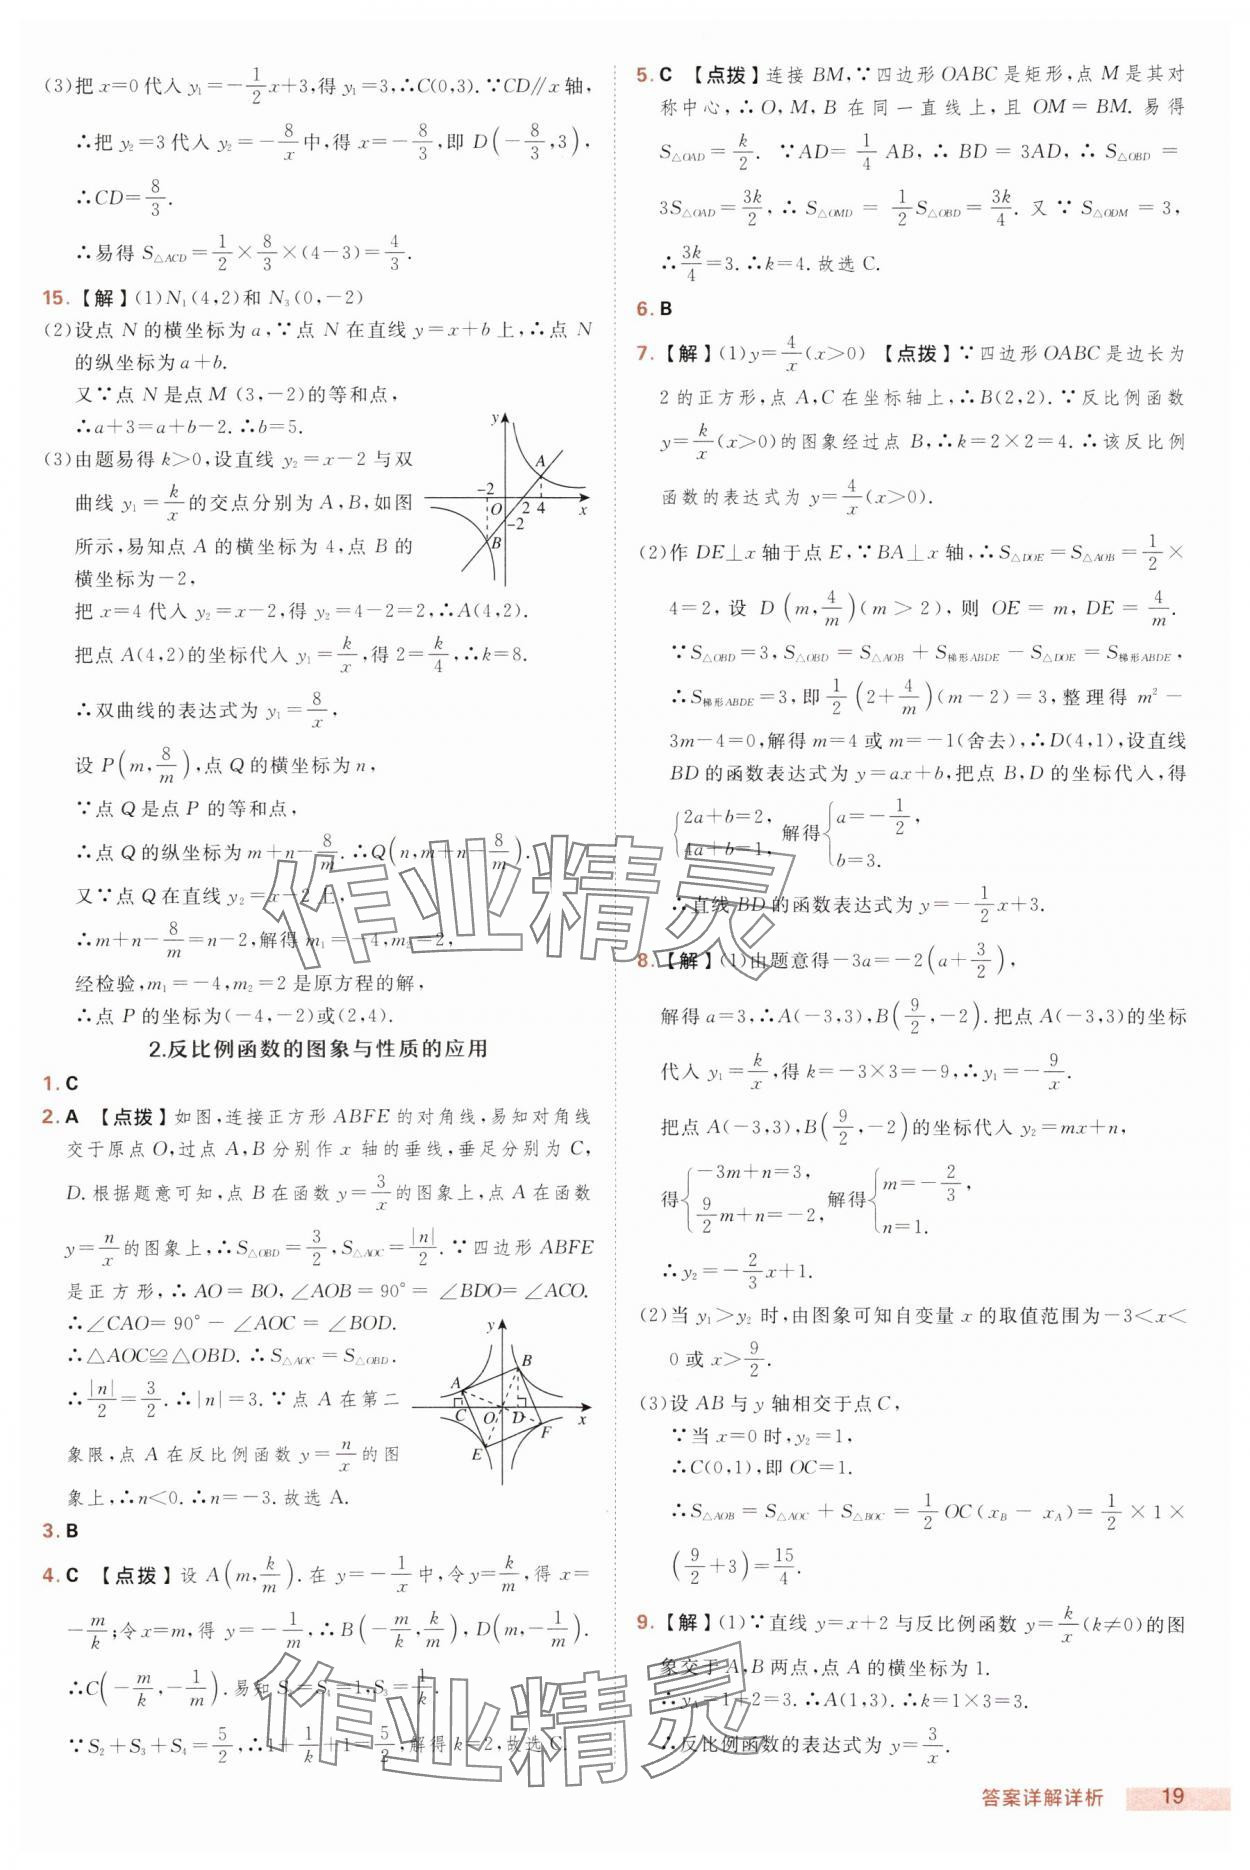 (3)把 x=0 代入 y₁=-1/2x+3,得 y₁=3,∴C(0,3).∵CD∥x 轴,
∴把 y₂=3 代入 y₂=-8/x中,得 x=-8/3,即 D(-8/3,3),
∴CD=8/3.
∴易得 S△ACD=1/2×8/3×(4-3)=4/3.
15.【解】(1)N₁(4,2)和 N₃(0,-2)
(2)设点 N 的横坐标为 a,∵点 N 在直线 y=x+b 上,∴点 N
的纵坐标为 a+b.
又∵点 N 是点 M (3,-2)的等和点,
∴a+3=a+b-2.∴b=5.
(3)由题易得 k>0,设直线 y₂=x-2 与双
曲线 y₁=k/x的交点分别为 A,B,如图
所示,易知点 A 的横坐标为 4,点 B 的
横坐标为-2,
y
A
-2
O
2 4
x
-2
B
把 x=4 代入 y₂=x-2,得 y₂=4-2=2,∴A(4,2).
把点 A(4,2)的坐标代入 y₁=k/x,得 2=k/4,∴k=8.
∴双曲线的表达式为 y₁=8/x,
设 P(m,8/m),点 Q 的横坐标为 n,
∵点 Q 是点 P 的等和点,
∴点 Q 的纵坐标为 m+n-8/m.∴Q(n,m+n-8/m).
又∵点 Q 在直线 y₂=x-2 上,
∴m+n-8/m=n-2,解得 m₁=-4,m₂=2,
经检验,m₁=-4,m₂=2 是原方程的解,
∴点 P 的坐标为(-4,-2)或(2,4).
2.反比例函数的图象与性质的应用
1.C
2.A 【点拨】如图,连接正方形 ABFE 的对角线,易知对角线
交于原点 O,过点 A,B 分别作 x 轴的垂线,垂足分别为 C,
D.根据题意可知,点 B 在函数 y=3/x的图象上,点 A 在函数
y=n/x的图象上,∴S△OBD=3/2,S△AOC=|n|/2.∵四边形 ABFE
是正方形,∴AO=BO,∠AOB=90°=∠BDO=∠ACO.
∴∠CAO=90°-∠AOC=∠BOD.
∴△AOC≌△OBD.∴S△AOC=S△OBD.
∴|n|/2=3/2.∴|n|=3.∵点 A 在第二
象限,点 A 在反比例函数 y=n/x的图
象上,∴n<0.∴n=-3.故选 A.
y
B
A
C
O
D
x
F
E
3.B
4.C 【点拨】设 A(m,k/m).在 y=-1/x中,令 y=k/m,得 x=
-m/k;令 x=m,得 y=-1/m,∴B(-m/k,k/m),D(m,-1/m).
∴C(-m/k,-1/m).易知 S₂=S₄=1,S₃=1/k.
∵S₂+S₃+S₄=5/2,∴1+1/k+1=5/2,解得 k=2,故选 C.
5.C 【点拨】连接 BM,∵四边形 OABC 是矩形,点 M 是其对
称中心,∴O,M,B 在同一直线上,且 OM=BM.易得
S△OAD=k/2.∵AD=1/4AB,∴BD=3AD,∴S△OBD=
3S△OAD=3k/2,∴S△OMD=1/2S△OBD=3k/4.又∵S△ODM=3,
∴3k/4=3.∴k=4.故选 C.
6.B
7.【解】(1)y=4/x(x>0) 【点拨】∵四边形 OABC 是边长为
2 的正方形,点 A,C 在坐标轴上,∴B(2,2).∵反比例函数
y=k/x(x>0)的图象经过点 B,∴k=2×2=4.∴该反比例
函数的表达式为 y=4/x(x>0).
(2)作 DE⊥x 轴于点 E,∵BA⊥x 轴,∴S△DOE=S△AOB=1/2×
4=2,设 D(m,4/m)(m>2),则 OE=m,DE=4/m.
∵S△OBD=3,S△OBD=S△AOB+S梯形ABDE-S△DOE=S梯形ABDE,
∴S梯形ABDE=3,即1/2(2+4/m)(m-2)=3,整理得 m²-
3m-4=0,解得 m=4 或 m=-1(舍去),∴D(4,1),设直线
BD 的函数表达式为 y=ax+b,把点 B,D 的坐标代入,得
{2a+b=2, 4a+b=1, 解得{a=-1/2, b=3.
∴直线 BD 的函数表达式为 y=-1/2x+3.
8.【解】(1)由题意得-3a=-2(a+3/2),
解得 a=3,∴A(-3,3),B(9/2,-2).把点 A(-3,3)的坐标
代入 y₁=k/x,得 k=-3×3=-9,∴y₁=-9/x.
把点 A(-3,3),B(9/2,-2)的坐标代入 y₂=mx+n,
得{-3m+n=3, 9/2m+n=-2, 解得{m=-2/3, n=1.
∴y₂=-2/3x+1.
(2)当 y₁>y₂ 时,由图象可知自变量 x 的取值范围为-3<x<
0 或 x>9/2.
(3)设 AB 与 y 轴相交于点 C,
∵当 x=0 时,y₂=1,
∴C(0,1),即 OC=1.
∴S△AOB=S△AOC+S△BOC=1/2OC(xB-xA)=1/2×1×
(9/2+3)=15/4.
9.【解】(1)∵直线 y=x+2 与反比例函数 y=k/x(k≠0)的图
象交于 A,B 两点,点 A 的横坐标为 1.
∴yA=1+2=3.∴A(1,3).∴k=1×3=3.
∴反比例函数的表达式为 y=3/x.
作业精灵
作业精灵
答案详解详析 19